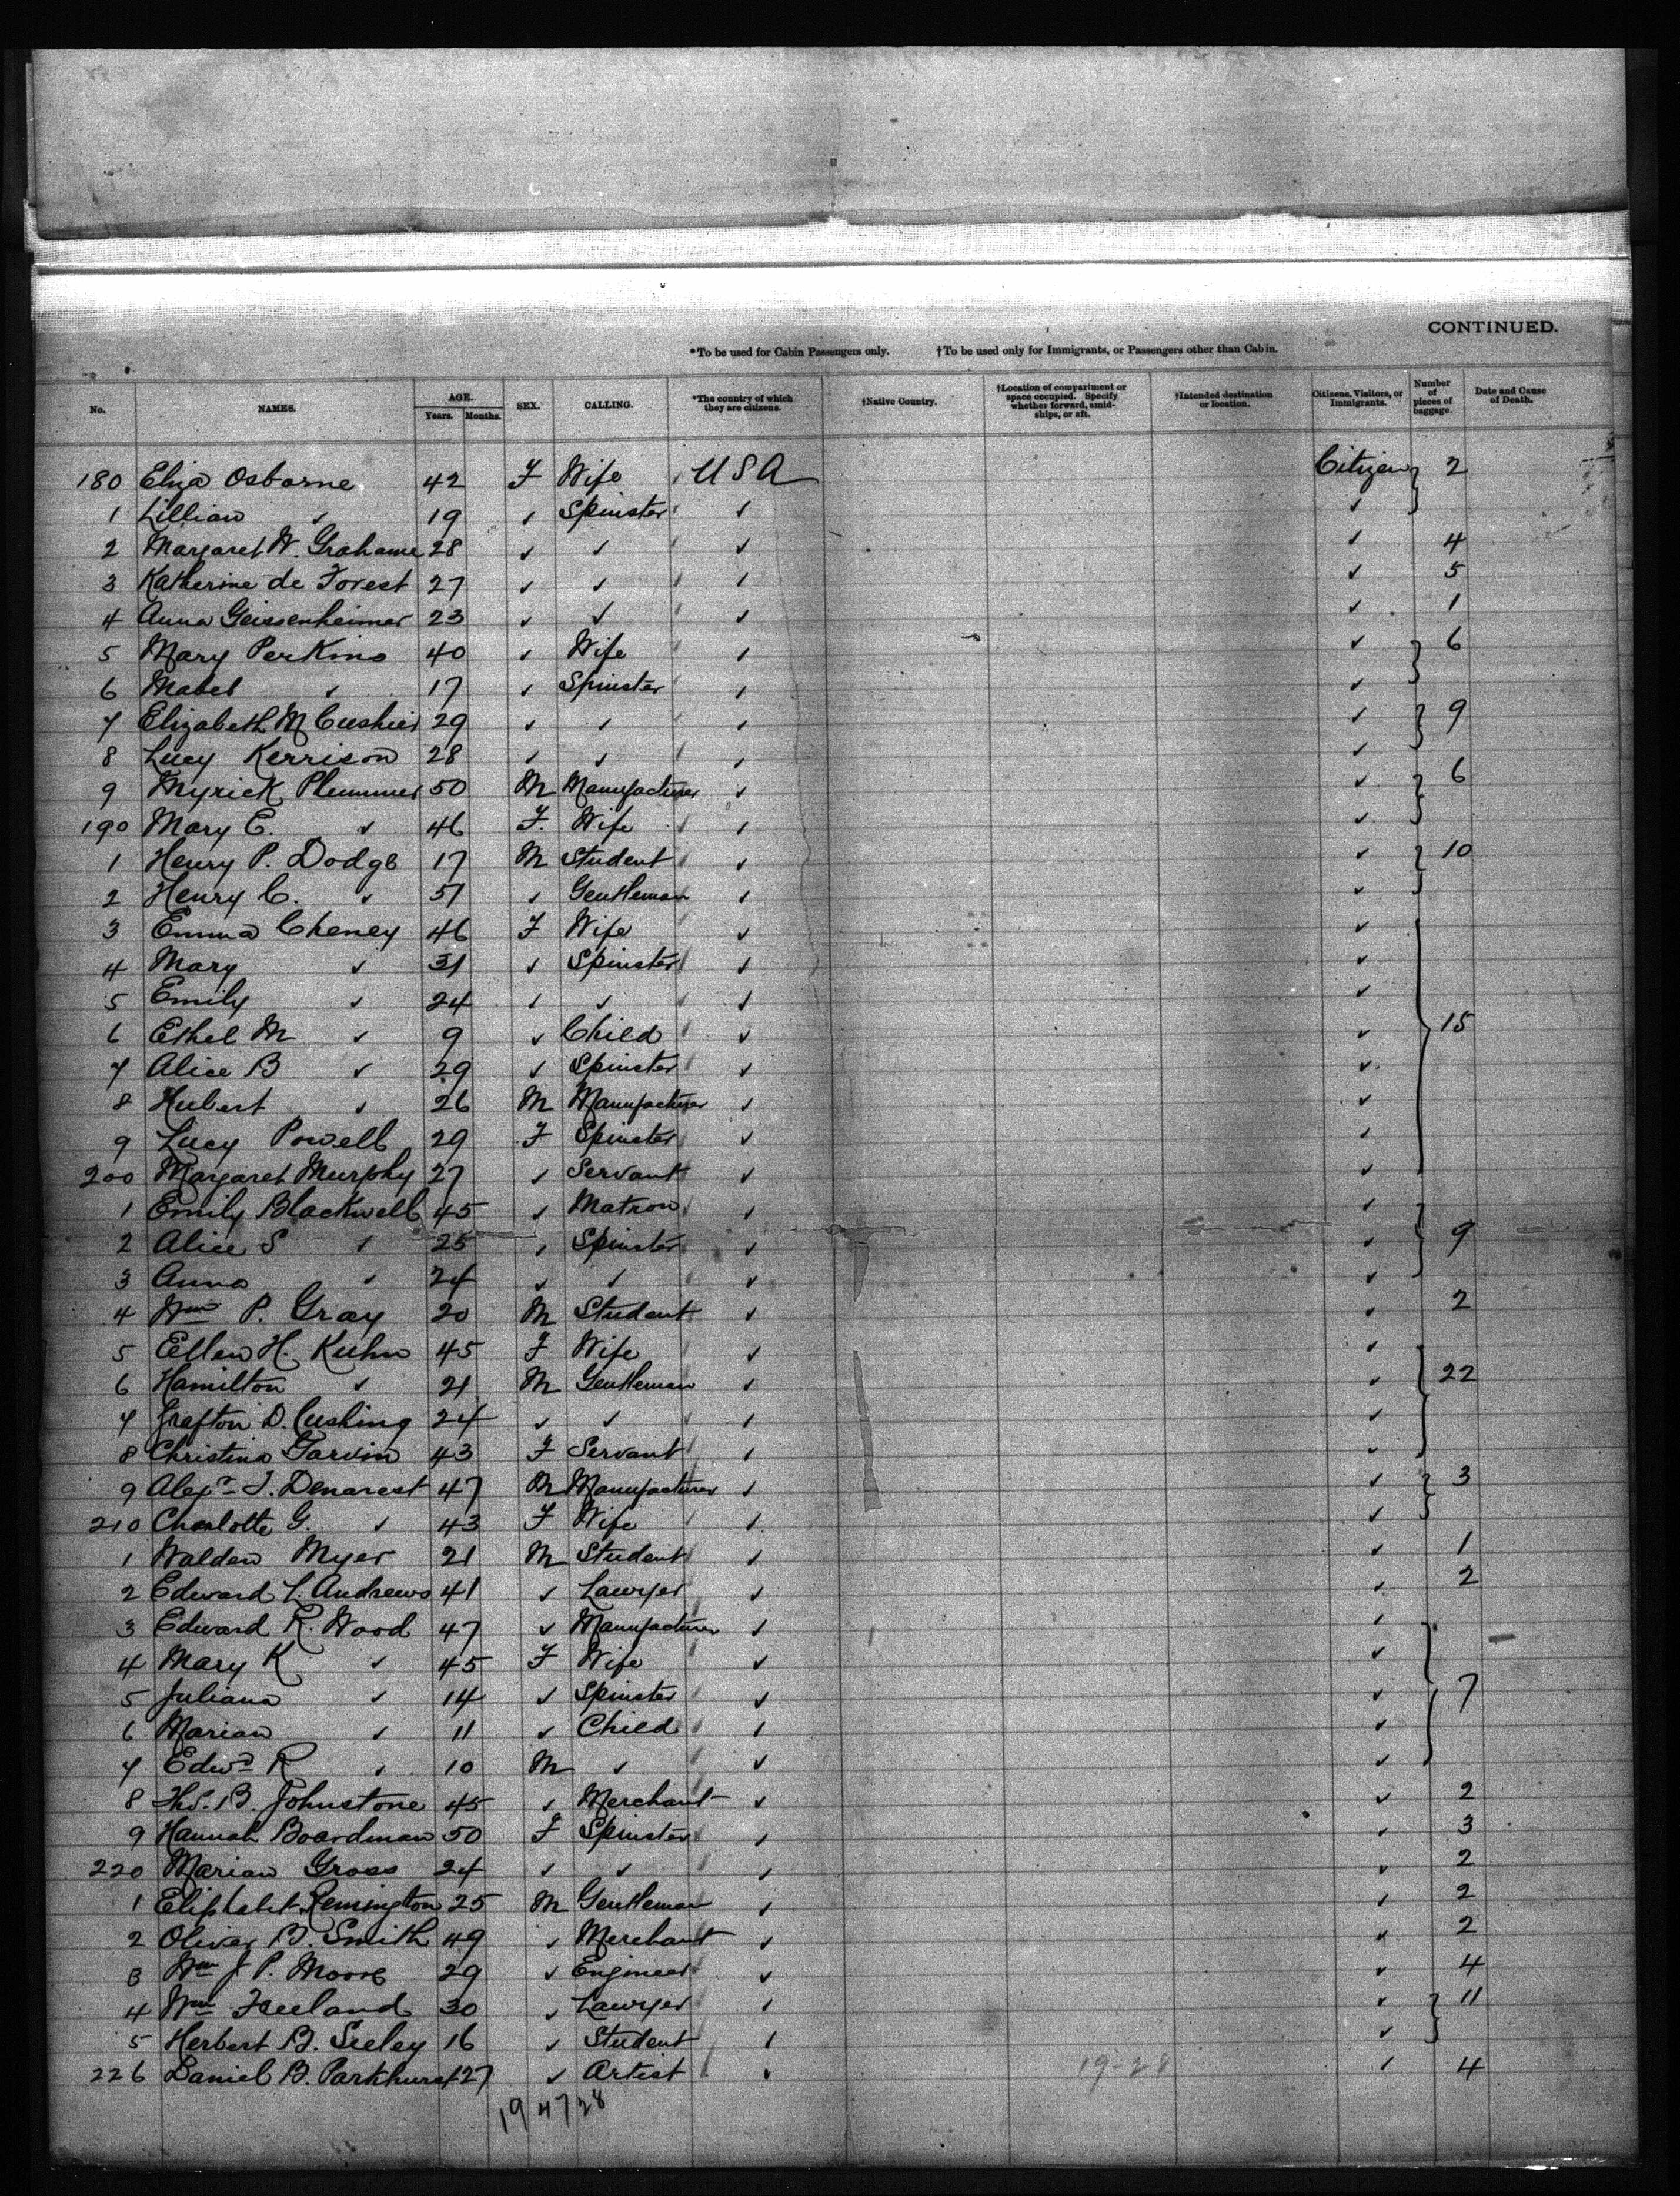 CONTINUED.
*To be used for Cabin Passengers only. †To be used only for Immigrants, or Passengers other than Cabin.
No. NAMES. AGE. Years. Months. SEX. CALLING. *The country of which they are citizens. †Native Country. †Location of compartment or space occupied. Specify whether forward, amidships, or aft. †Intended destination or location. Citizens, Visitors, or Immigrants. Number of pieces of baggage. Date and Cause of Death.
180 Eliza Osborne 42 F Wife USA Citizen 2
1 Lillian ✓ 19 ✓ Spinster ✓ ✓
2 Margaret W. Grahame 28 ✓ ✓ ✓ ✓ 4
3 Katherine de Forest 27 ✓ ✓ ✓ ✓ 5
4 Anna Geissenheimer 23 ✓ ✓ ✓ ✓ 1
5 Mary Perkins 40 ✓ Wife ✓ ✓ 6
6 Mabel ✓ 17 ✓ Spinster ✓ ✓
7 Elizabeth M Cushier 29 ✓ ✓ ✓ ✓ 9
8 Lucy Kerrison 28 ✓ ✓ ✓ ✓
9 Myrick Plummer 50 M Manufacturer ✓ ✓ 6
190 Mary E. ✓ 46 F. Wife ✓ ✓
1 Henry P. Dodge 17 M Student ✓ ✓ 10
2 Henry C. ✓ 51 ✓ Gentleman ✓ ✓
3 Emma Cheney 46 F Wife ✓ ✓
4 Mary ✓ 31 ✓ Spinster ✓ ✓
5 Emily ✓ 24 ✓ ✓ ✓ ✓
6 Ethel M ✓ 9 ✓ Child ✓ ✓ 15
7 Alice B ✓ 29 ✓ Spinster ✓ ✓
8 Hubert ✓ 26 M Manufacturer ✓ ✓
9 Lucy Powell 29 F Spinster ✓ ✓
200 Margaret Murphy 27 ✓ Servant ✓ ✓
1 Emily Blackwell 45 ✓ Matron ✓ ✓
2 Alice S ✓ 25 ✓ Spinster ✓ ✓ 9
3 Anna ✓ 24 ✓ ✓ ✓ ✓
4 Wm P. Gray 20 M Student ✓ ✓ 2
5 Ellen H. Kuhn 45 F Wife ✓ ✓
6 Hamilton ✓ 21 M Gentleman ✓ ✓ 22
7 Grafton D. Cushing 24 ✓ ✓ ✓ ✓
8 Christina Garvin 43 F Servant ✓ ✓
9 Alexr. J. Demarest 47 M Manufacturer ✓ ✓ 3
210 Charlotte G. ✓ 43 F Wife ✓ ✓
1 Walden Myer 21 M Student ✓ ✓ 1
2 Edward L. Andrews 41 ✓ Lawyer ✓ ✓ 2
3 Edward R. Wood 47 ✓ Manufacturer ✓ ✓
4 Mary K ✓ 45 F Wife ✓ ✓
5 Juliana ✓ 14 ✓ Spinster ✓ ✓ 7
6 Marian ✓ 11 ✓ Child ✓ ✓
7 Edwd R ✓ 10 M ✓ ✓ ✓
8 Thos. B. Johnstone 45 ✓ Merchant ✓ ✓ 2
9 Hannah Boardman 50 F Spinster ✓ ✓ 3
220 Marian Gross 24 ✓ ✓ ✓ ✓ 2
1 Eliphalet Remington 25 M Gentleman ✓ ✓ 2
2 Oliver B. Smith 49 ✓ Merchant ✓ ✓ 2
3 Wm J P. Moore 29 ✓ Engineer ✓ ✓ 4
4 Wm Freeland 30 ✓ Lawyer ✓ ✓ 11
5 Herbert B. Seeley 16 ✓ Student ✓ ✓
226 Daniel B. Parkhurst 27 ✓ Artist ✓ 19-28 ✓ 4
19 47 28